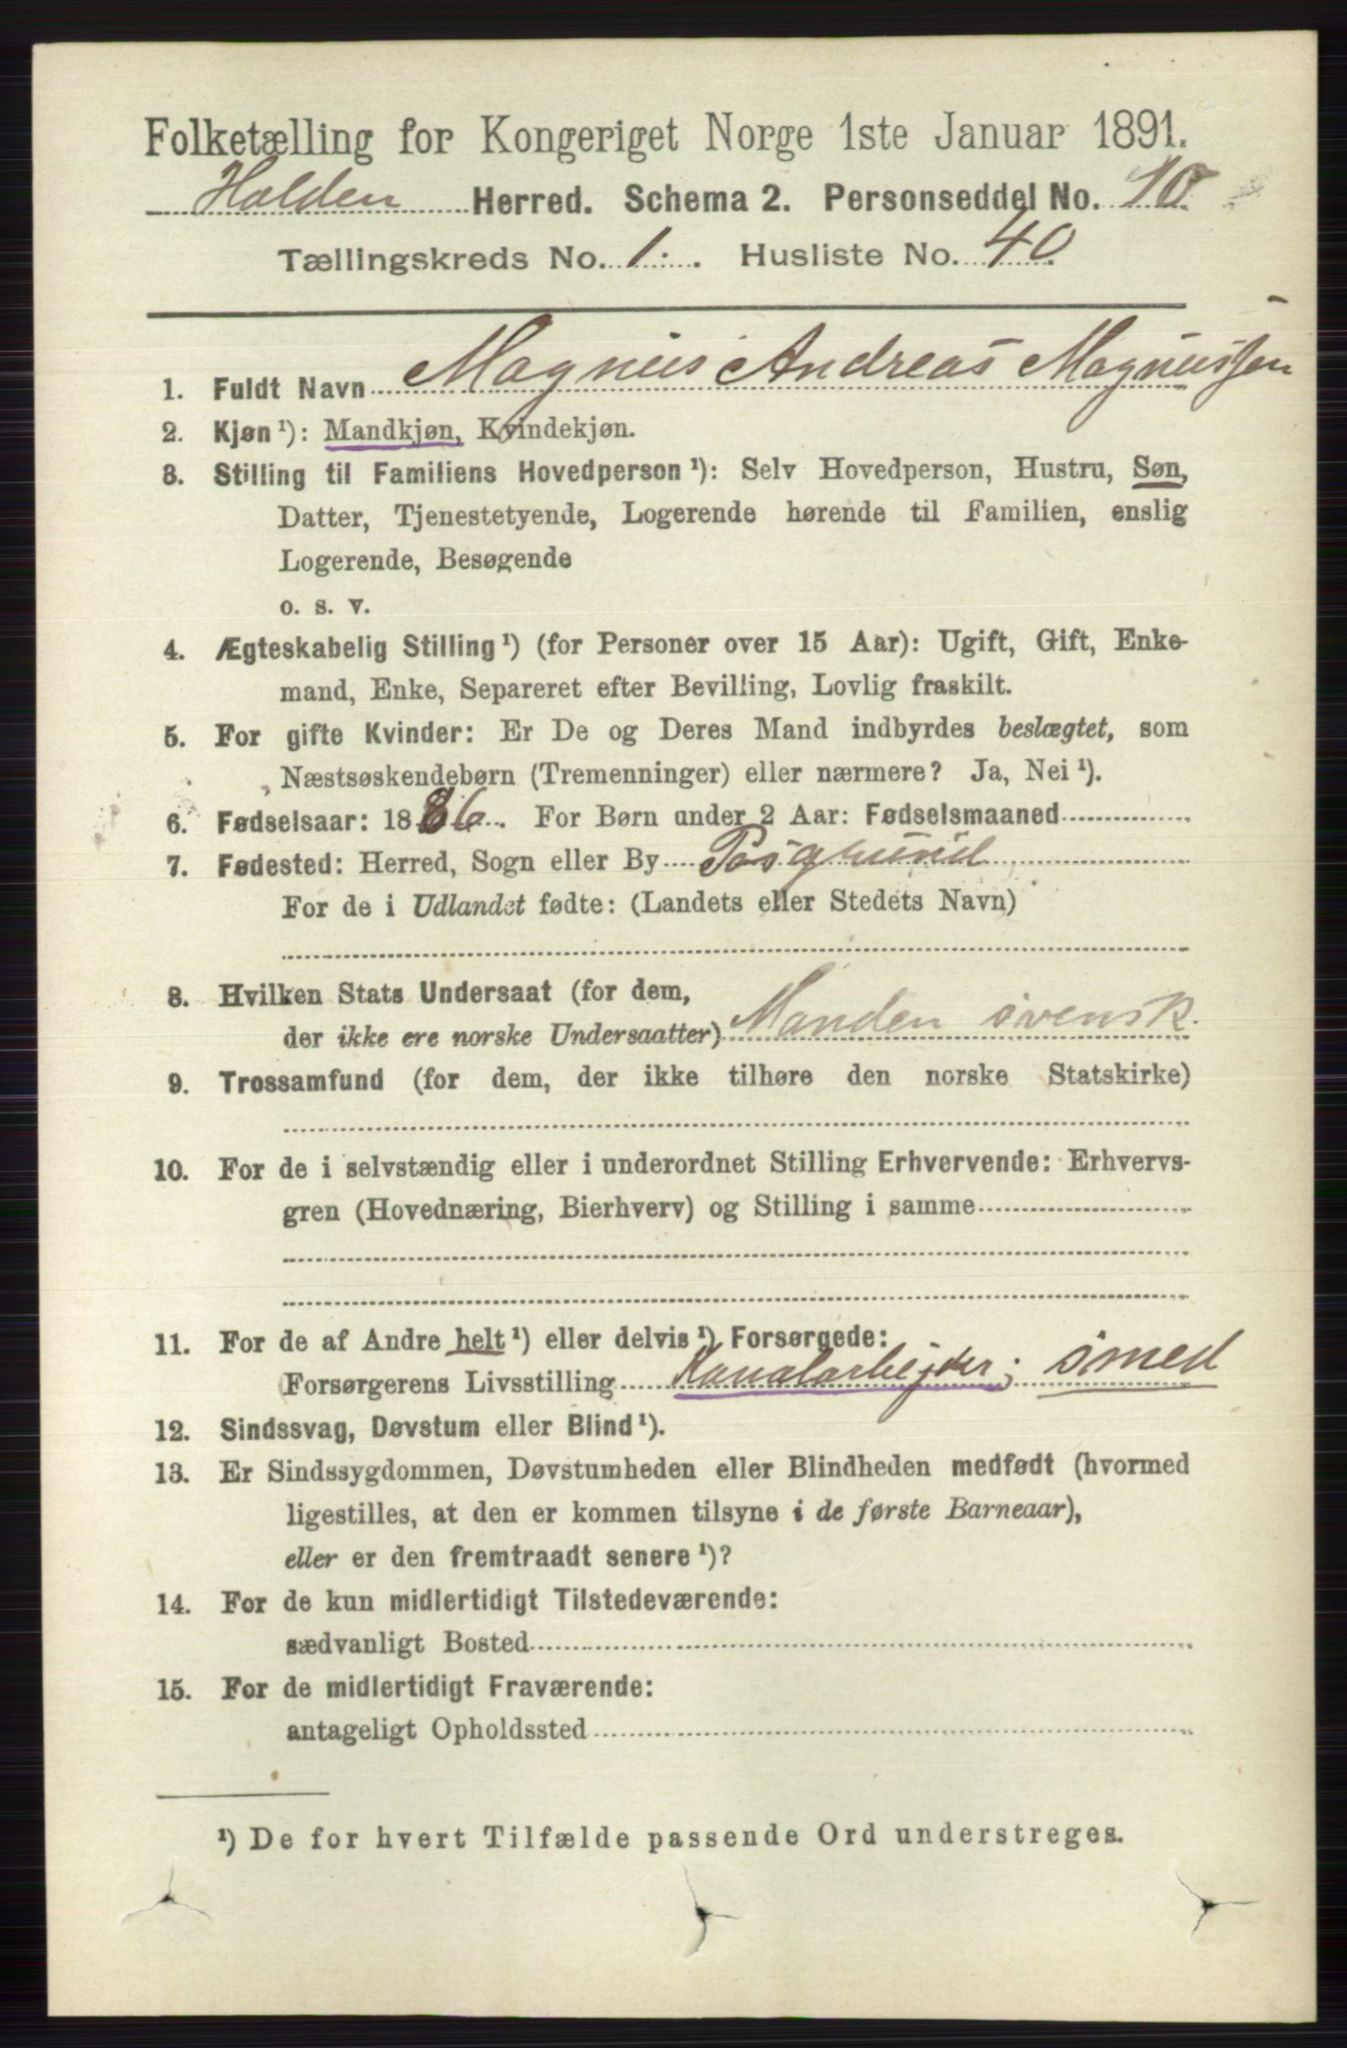 Folketælling for Kongeriget Norge 1ste Januar 1891.
Holden Herred. Schema 2. Personseddel No. 10.
Tællingskreds No. 1. Husliste No. 40
1. Fuldt Navn Magnus Andreas Magnussen
2. Kjøn¹): Mandkjøn, Kvindekjøn.
3. Stilling til Familiens Hovedperson¹): Selv Hovedperson, Hustru, Søn,
Datter, Tjenestetyende, Logerende hørende til Familien, enslig
Logerende, Besøgende
o. s. v.
4. Ægteskabelig Stilling¹) (for Personer over 15 Aar): Ugift, Gift, Enke-
mand, Enke, Separeret efter Bevilling, Lovlig fraskilt.
5. For gifte Kvinder: Er De og Deres Mand indbyrdes beslægtet, som
Næstsøskendebørn (Tremenninger) eller nærmere? Ja, Nei¹).
6. Fødselsaar: 1886. For Børn under 2 Aar: Fødselsmaaned
7. Fødested: Herred, Sogn eller By Posgrund
For de i Udlandet fødte: (Landets eller Stedets Navn)
8. Hvilken Stats Undersaat (for dem,
der ikke ere norske Undersaatter) Manden svensk.
9. Trossamfund (for dem, der ikke tilhøre den norske Statskirke)
10. For de i selvstændig eller i underordnet Stilling Erhvervende: Erhvervs-
gren (Hovednæring, Bierhverv) og Stilling i samme
11. For de af Andre helt¹) eller delvis¹) Forsørgede:
Forsørgerens Livsstilling Kanalarbejder; smed
12. Sindssvag, Døvstum eller Blind¹).
13. Er Sindssygdommen, Døvstumheden eller Blindheden medfødt (hvormed
ligestilles, at den er kommen tilsyne i de første Barneaar),
eller er den fremtraadt senere¹)?
14. For de kun midlertidigt Tilstedeværende:
sædvanligt Bosted
15. For de midlertidigt Fraværende:
antageligt Opholdssted
¹) De for hvert Tilfælde passende Ord understreges.